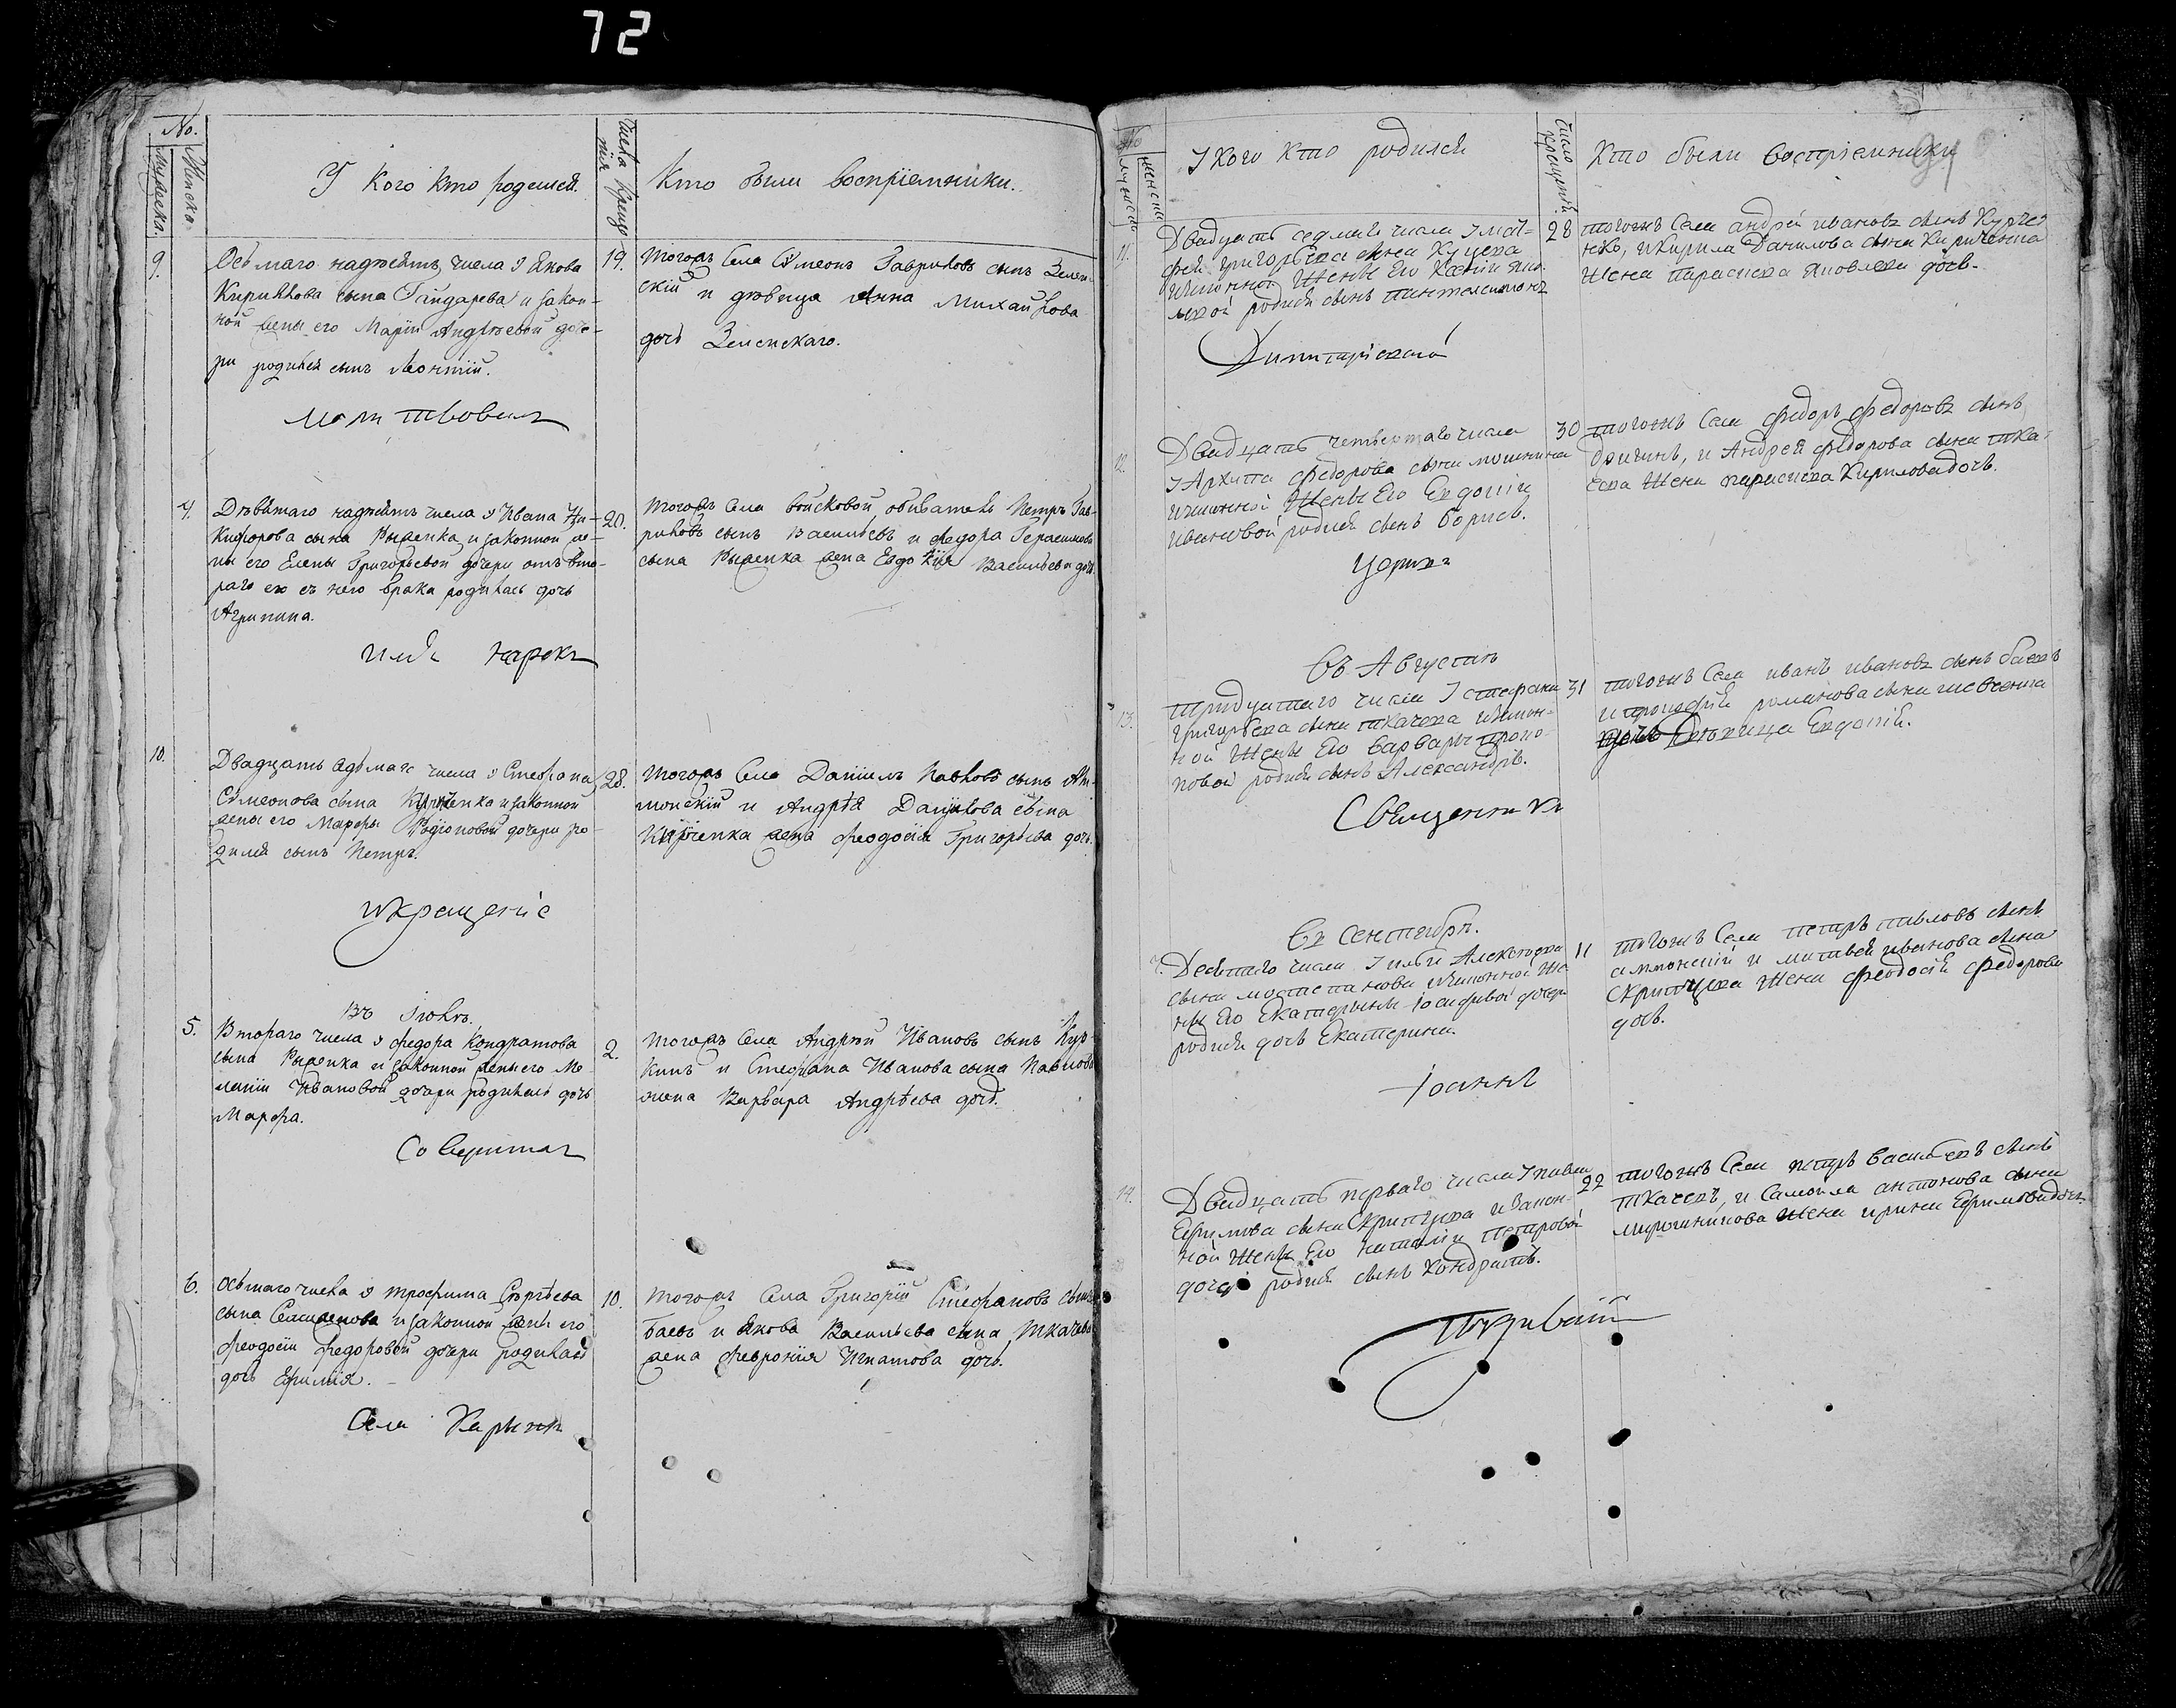 72
No.
Мужеска.
Женска.
У кого кто родился.
Числа крещенія
Кто были воспріемники.
9.
Осьмаго надесять числа у Якова
Кириллова сына Гайдарева и закон-
ной жены его Маріи Андреевой доче-
ри родился сынъ Леонтій.
19.
Тогожъ села Симеонъ Гавриловъ сынъ Зелен-
скій и дѣвица Анна Михайлова
дочь Зеленскаго.
молитвовалъ
4.
Девятаго надесять числа у Ивана Ни-
кифорова сына и законной же-
ны его Елены Григорьевой дочери отъ вто-
раго ея съ него брака родилась дочь
Агрипина.
20.
Тогожъ села войсковой обыватель Петръ Гав-
риловъ сынъ Васильевъ и Федора Герасимова
сына жена Евдокія Васильева дочь.
имя нарекъ
10.
Двадцать седьмаго числа у Стефана
Симеонова сына и законной
жены его Марфы Родіоновой дочери ро-
дился сынъ Петръ.
28.
Тогожъ села Даніилъ Павловъ сынъ Ам-
монскій и Андрея Данилова сына
жена Феодосія Григорьева дочь.
и крещеніе
Въ Іюлѣ.
5.
Втораго числа у Федора Кондратова
сына и законной жены его Ме-
ланіи Ивановой дочери родилась дочь
Марфа.
2.
Тогожъ села Андрей Ивановъ сынъ Кур-
кинъ и Стефана Иванова сына Павлова
жена Варвара Андреева дочь.
совершилъ
6.
Осьмаго числа у Трофима Сергѣева
сына и законной жены его
Феодосіи Федоровой дочери родилась
дочь Ефимія.
10.
Тогожъ села Григорій Стефановъ сынъ
Баевъ и Якова Васильева сына Ткачева
жена Февронія Игнатова дочь.
Села
No
мужеск
женска
У кого кто родился
Число крещенія
Кто были воспріемники
11.
Двадцать седмаго числа у Мат-
фея Григорьева сына Куцева
и законной жены его Ксеніи Яко-
влевой родися сынъ Пантелеимонъ
28
тогожъ села Андрей Ивановъ сынъ
и Кирила Данилова сына Кириченка
жена Параскева Яковлева дочь.
Димитріевской
12.
Двадцать четвертаго числа
у Архипа Федорова сына
и законной жены его Евдокіи
Ивановой родися сынъ Борисъ.
30
тогожъ села Федоръ Федоровъ сынъ
и Андрея Федорова сына Тка-
чева жена Параскева Кирилова дочь.
Церкви
Въ Августѣ
13.
тридцатаго числа у Стефана
Григорьева сына Ткачева и закон-
ной жены его Варвары Проко-
повой родися сынъ Александръ.
31
тогожъ села Иванъ Ивановъ сынъ Баевъ
и Романова сына Шевченка
дочь Дѣвица Евдокія.
Священникъ
Въ Сентябрѣ.
7.
Десятаго числа у Ильи Алексѣева
сына и законной же-
ны его Екатерины Іосифовой дочери
родися дочь Екатерина.
11
тогожъ села Петръ Павловъ сынъ
Аммонскій и Матвея Иванова сына
Скрипцева жена Феодосія Федорова
дочь.
Іоаннъ
14.
Двадцать перваго числа у Павла
Ефимова сына Скрипцева и закон-
ной жены его Наталіи Петровой
дочери родися сынъ Кондратъ.
22
тогожъ села Петръ Васильевъ сынъ
Ткачевъ, и Самоила Антонова сына
Мирошникова жена Ирина Ефимова дочь.